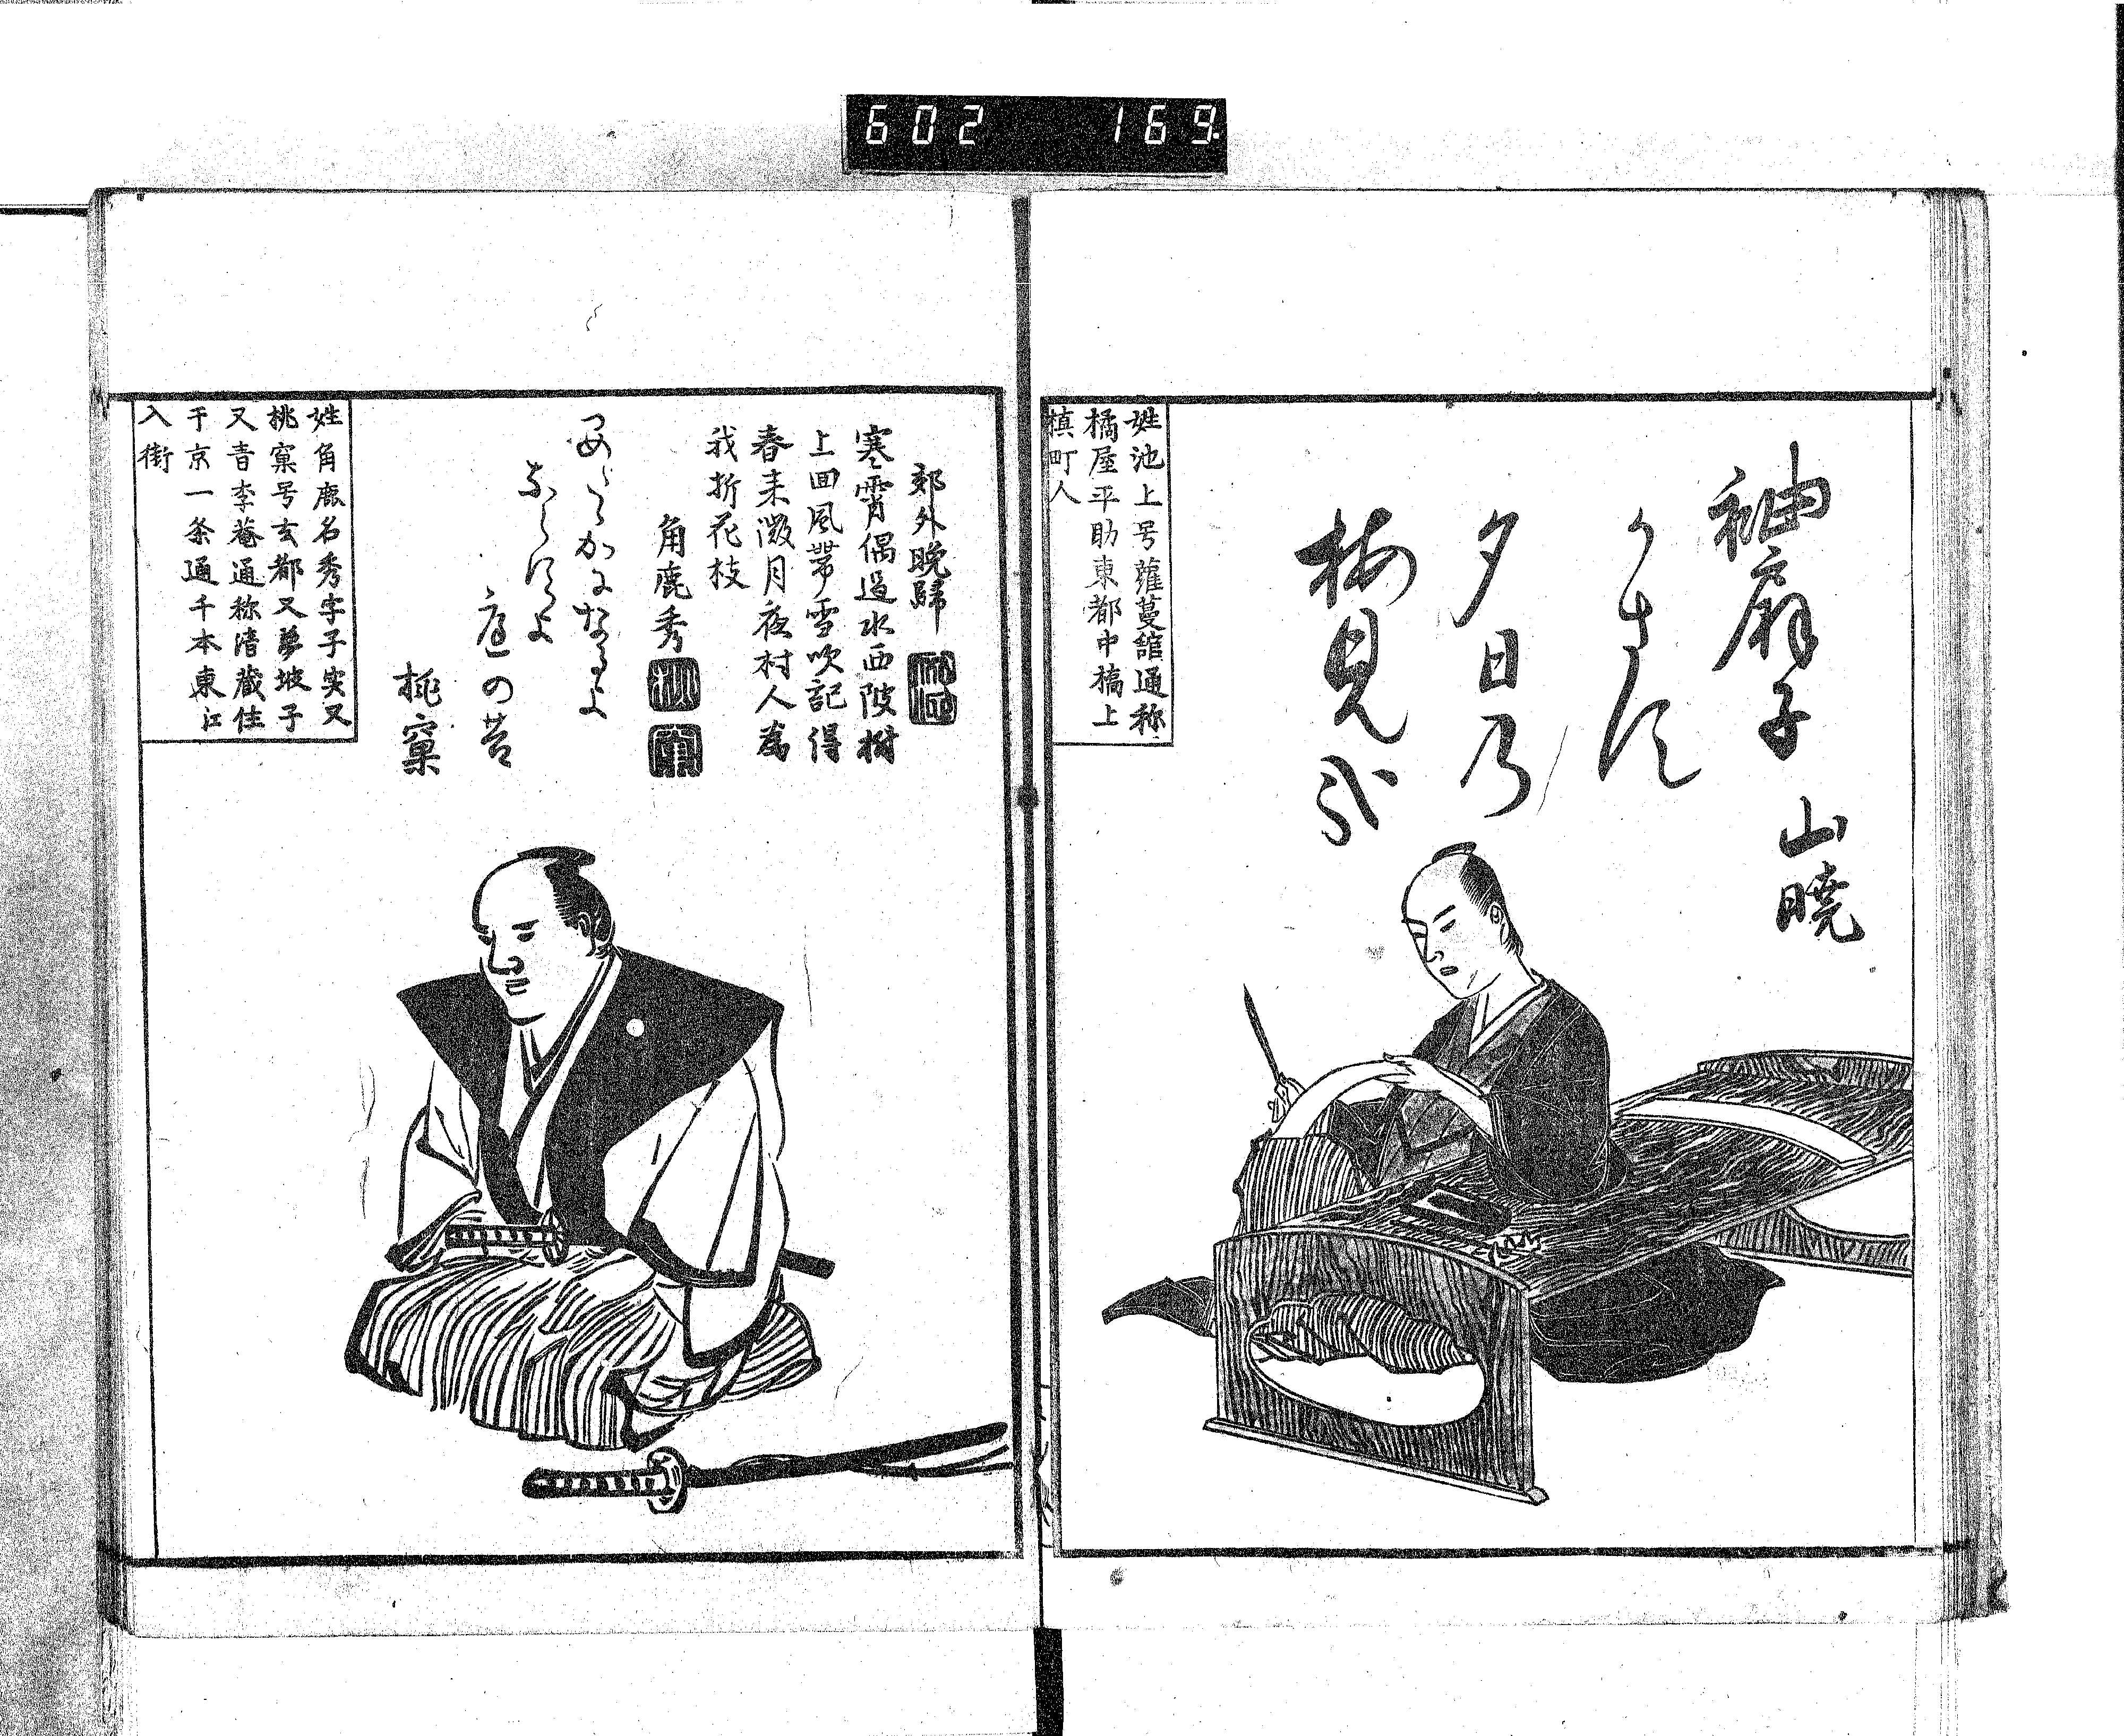 602 169
袖扇子 山暁
かさす
夕日乃
梅見哉
姓池上号蘿蔓舘通称
橘屋平助東都中橋上
槙町人
郊外晩歸
寒霄偶過水西陂樹
上回風帶雪吹記得
春来溦月夜村人為
我折花枝
角鹿秀
庭の苔
桃窠
姓角鹿名秀字子实又
桃窠号玄都又夢坡子
又青李菴通称清蔵住
于京一条通千本東江
入街